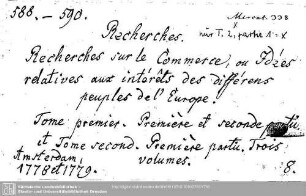 588. – 590.
Mercat. 338
Recherches.
nur T. 2, partie 1 = X
Recherches sur le Commerce, ou Idées
relatives aux intérêts des différens
peuples de l'Europe.
Tome premier. Première et seconde partie
et Tome second. Première partie. Trois
Amsterdam, volumes.
1778 et 1779. 8.